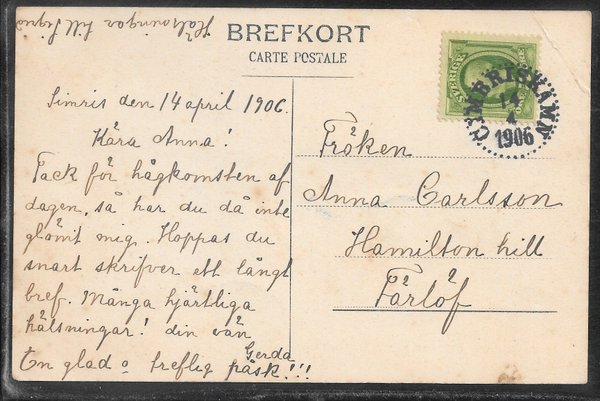 Hälsningar till Signe
BREFKORT
CARTE POSTALE
SVERIGE
CIMBRISHAMN
14
4
1906
Simris den 14 april 1906.
Kära Anna!
Tack för hågkomsten af
dagen, så har du då inte
glömt mig. Hoppas du
snart skrifver ett långt
bref. Många hjärtliga
hälsningar! din vän
Gerda
En glad o treflig påsk!!!
Fröken
Anna Carlsson
Hamilton hill
Färlöf